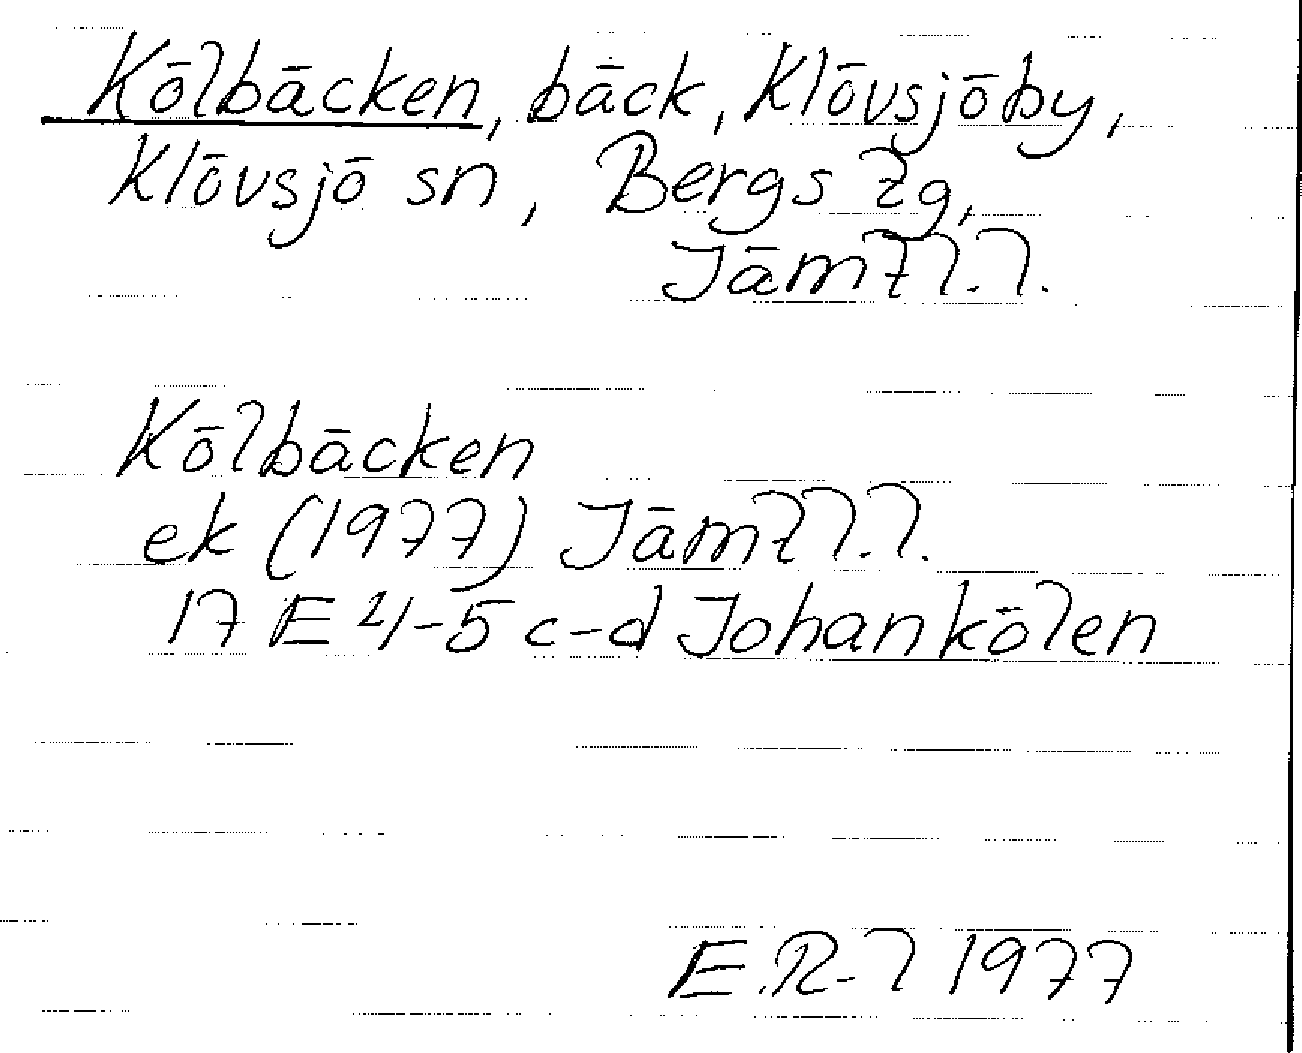 Kölbäcken, bäck, Klövsjöby,
Klövsjö sn, Bergs tg,
Jämtl.l.
Kölbäcken
ek (1977) Jämtl.l.
17 E 4-5 c-d Johankölen
E.R-l 1977